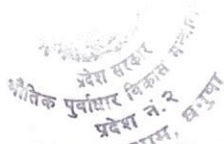 प्रदेश सरकार
भौतिक पुर्वाधार विकास
प्रदेश नं. २